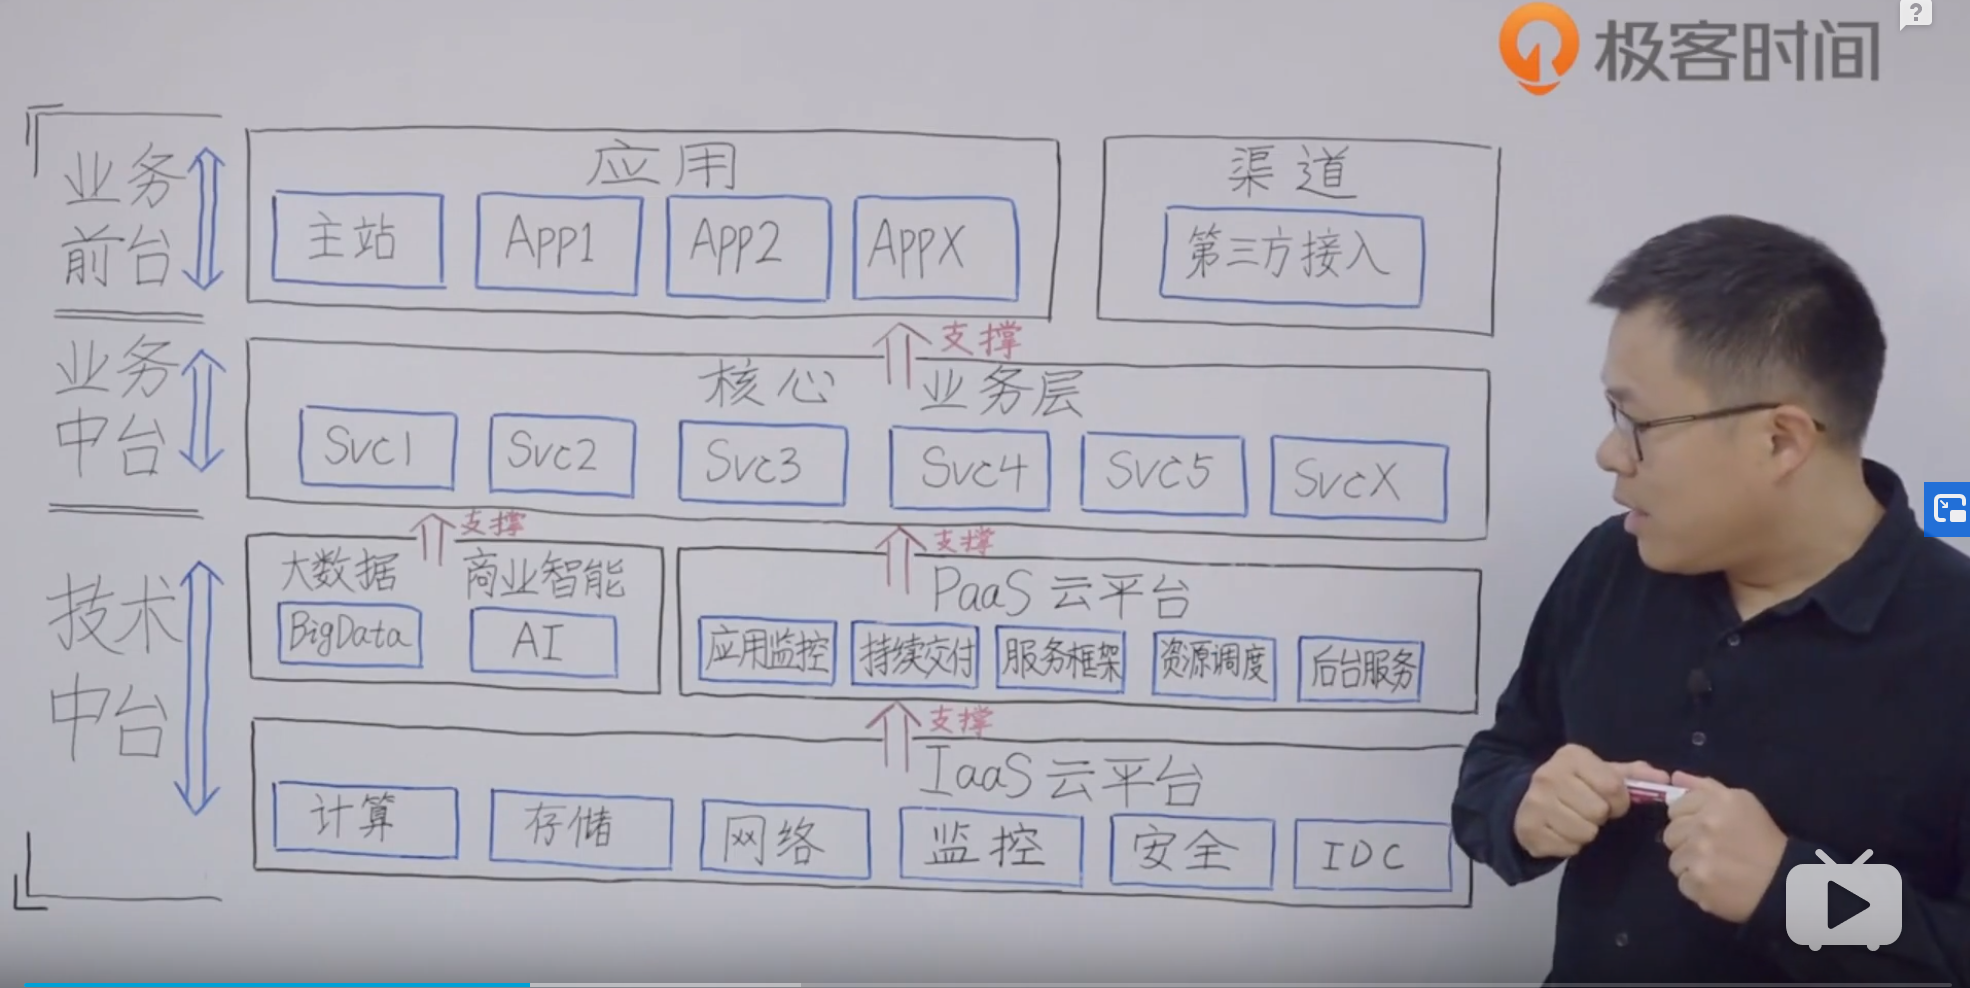 极客时间
?
业务
前台
应用
主站
App1
App2
AppX
渠道
第三方接入
支撑
业务
中台
核心业务层
Svc1
Svc2
Svc3
Svc4
Svc5
SvcX
支撑
支撑
技术
中台
大数据
商业智能
BigData
AI
PaaS 云平台
应用监控
持续交付
服务框架
资源调度
后台服务
支撑
IaaS 云平台
计算
存储
网络
监控
安全
IDC